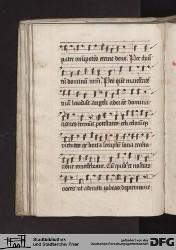 pater omnipotens eterne deus. Per
dominum Per quem
tuam laudant angeli adorant domina
tiones tremunt potestates celi
virtutes ac beata seraphin socia exulta
tione Cum quibus et nostras
voces ut admitti iubeas deprecamur
Stadtbibliothek
und Stadtarchiv Trier
gefördert von der
Deutschen Forschungsgemeinschaft
DFG